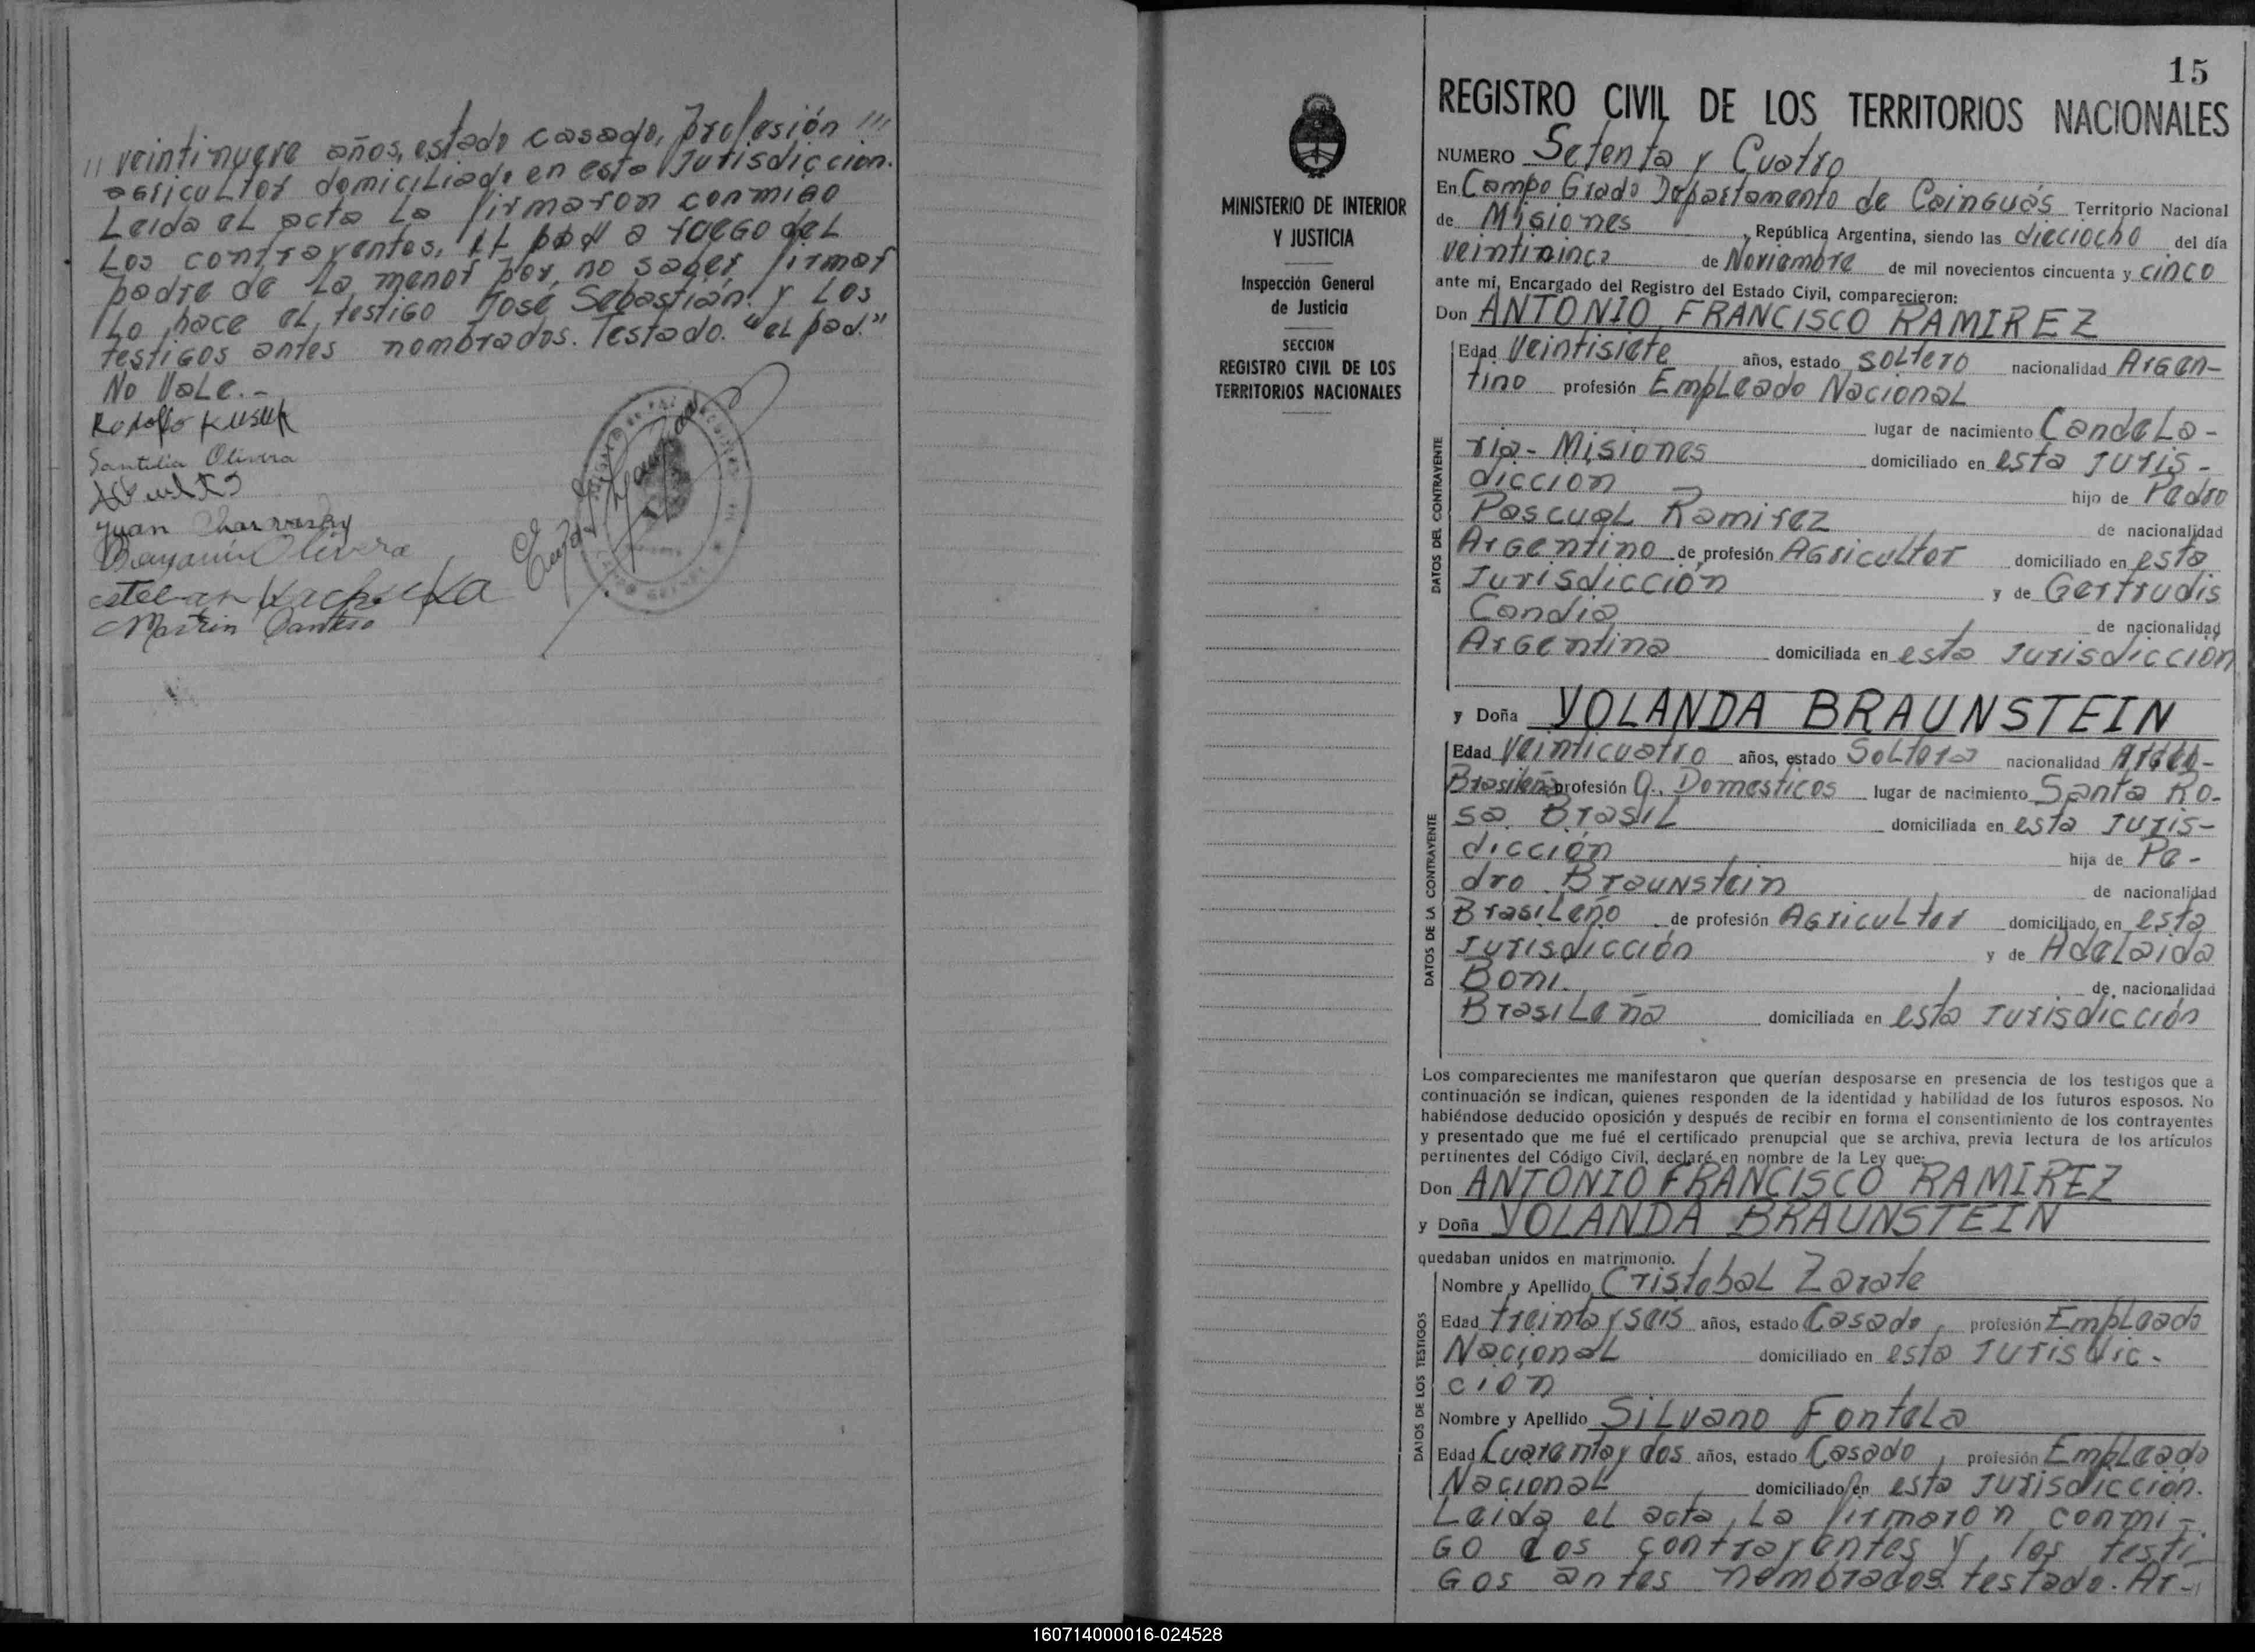 " veintinueve años, estado casado, profesión "'
agricultor domiciliado en esta Jurisdicción.
Leida el acta La firmaron conmigo
Los contrayentes, el pad a ruego del
padre de La menor por no saber firmar
Lo hace el testigo José Sebastián y Los
testigos antes nombrados. Testado. "el pad."
No Vale.-
Rodolfo
Santilia Olivera
Juan
Benjamin Olivera
Esteban
Martin
15
REGISTRO CIVIL DE LOS TERRITORIOS NACIONALES
MINISTERIO DE INTERIOR
Y JUSTICIA
Inspección General
de Justicia
SECCION
REGISTRO CIVIL DE LOS
TERRITORIOS NACIONALES
NUMERO Setenta y Cuatro
En Campo Grado Departamento de Cainguás Territorio Nacional
de Misiones, República Argentina, siendo las dieciocho del día
de Noviembre de mil novecientos cincuenta y cinco
ante mí, Encargado del Registro del Estado Civil, comparecieron:
Don ANTONIO FRANCISCO RAMIREZ
DATOS DEL CONTRAYENTE
Edad Veintisiete años, estado soltero nacionalidad Argen-
tino profesión Empleado Nacional
lugar de nacimiento Candela-
ria - Misiones domiciliado en esta Juris-
dicción hijo de Pedro
Pascual Ramirez de nacionalidad
Argentino de profesión Agricultor domiciliado en esta
Jurisdicción y de Gertrudis
Candia de nacionalidad
Argentina domiciliada en esta Jurisdicción
y Doña YOLANDA BRAUNSTEIN
DATOS DE LA CONTRAYENTE
Edad Veinticuatro años, estado Soltera nacionalidad Argen-
Brasileña profesión Q. Domesticos lugar de nacimiento Santa Ro-
sa. Brasil domiciliada en esta Juris-
dicción hija de Pe-
dro Braunstein de nacionalidad
Brasileño de profesión Agricultor domiciliado en esta
Jurisdicción y de Adelaida
Boni. de nacionalidad
Brasileña domiciliada en esta Jurisdicción
Los comparecientes me manifestaron que querían desposarse en presencia de los testigos que a
continuación se indican, quienes responden de la identidad y habilidad de los futuros esposos. No
habiéndose deducido oposición y después de recibir en forma el consentimiento de los contrayentes
y presentado que me fué el certificado prenupcial que se archiva, previa lectura de los artículos
pertinentes del Código Civil, declaré en nombre de la Ley que:
Don ANTONIO FRANCISCO RAMIREZ
y Doña YOLANDA BRAUNSTEIN
quedaban unidos en matrimonio.
DATOS DE LOS TESTIGOS
Nombre y Apellido Cristobal Zarate
Edad treinta y seis años, estado Casado, profesión Empleado
Nacional domiciliado en esta Jurisdic-
ción
Nombre y Apellido Silvano Fontela
Edad Cuarenta y dos años, estado Casado, profesión Empleado
Nacional domiciliado en esta Jurisdicción.
Leida el acta, La firmaron conmi-
go los contrayentes y los testi-
gos antes nombrados. testado. Ar-"
160714000016-024528